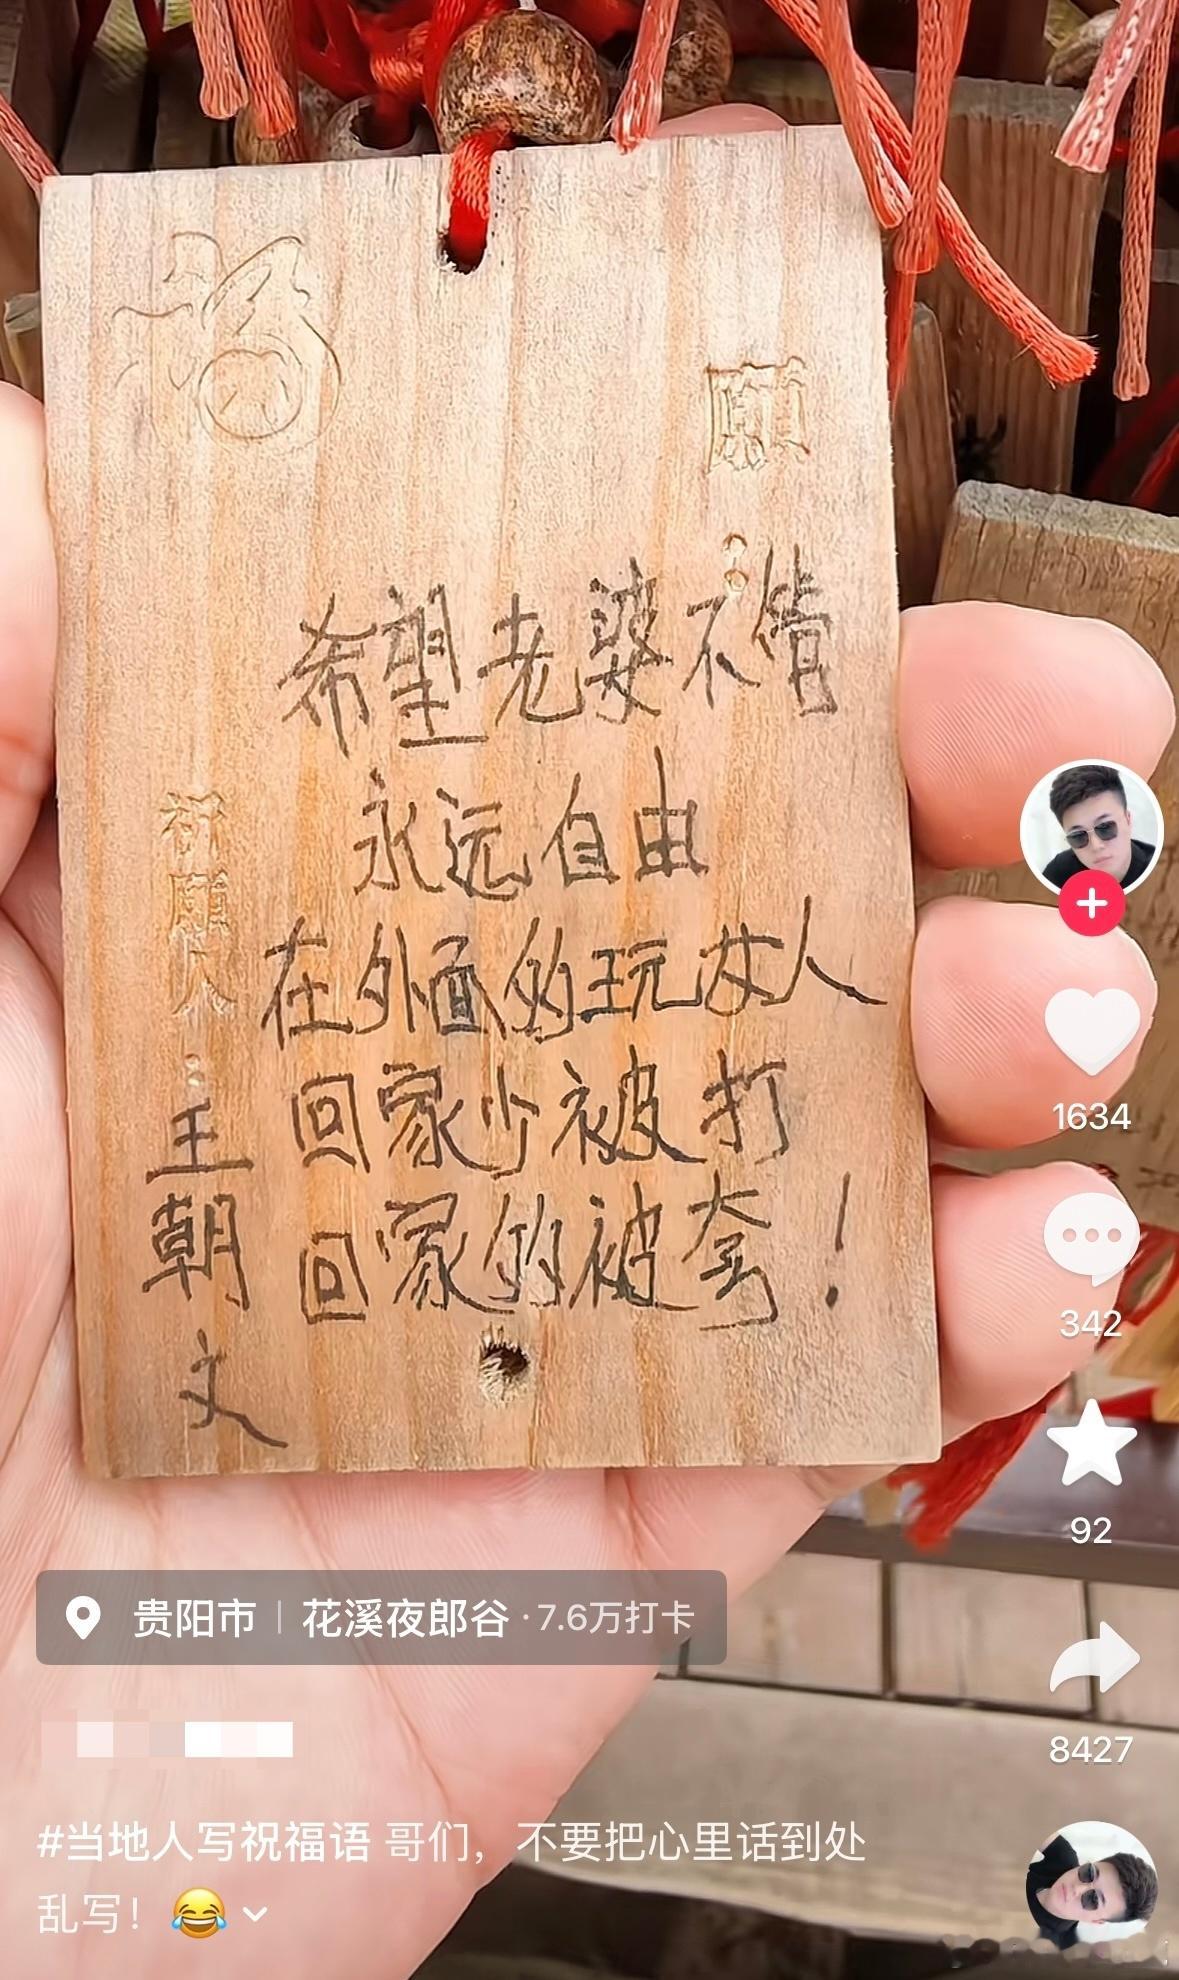 福
願
:
希望老婆不管
永远自由
在外面的玩女人
回家少被打
回家的被套！
祈願人:
王朝文
1634
342
92
8427
贵阳市 | 花溪夜郎谷 · 7.6万打卡
#当地人写祝福语 哥们，不要把心里话到处
乱写！😂